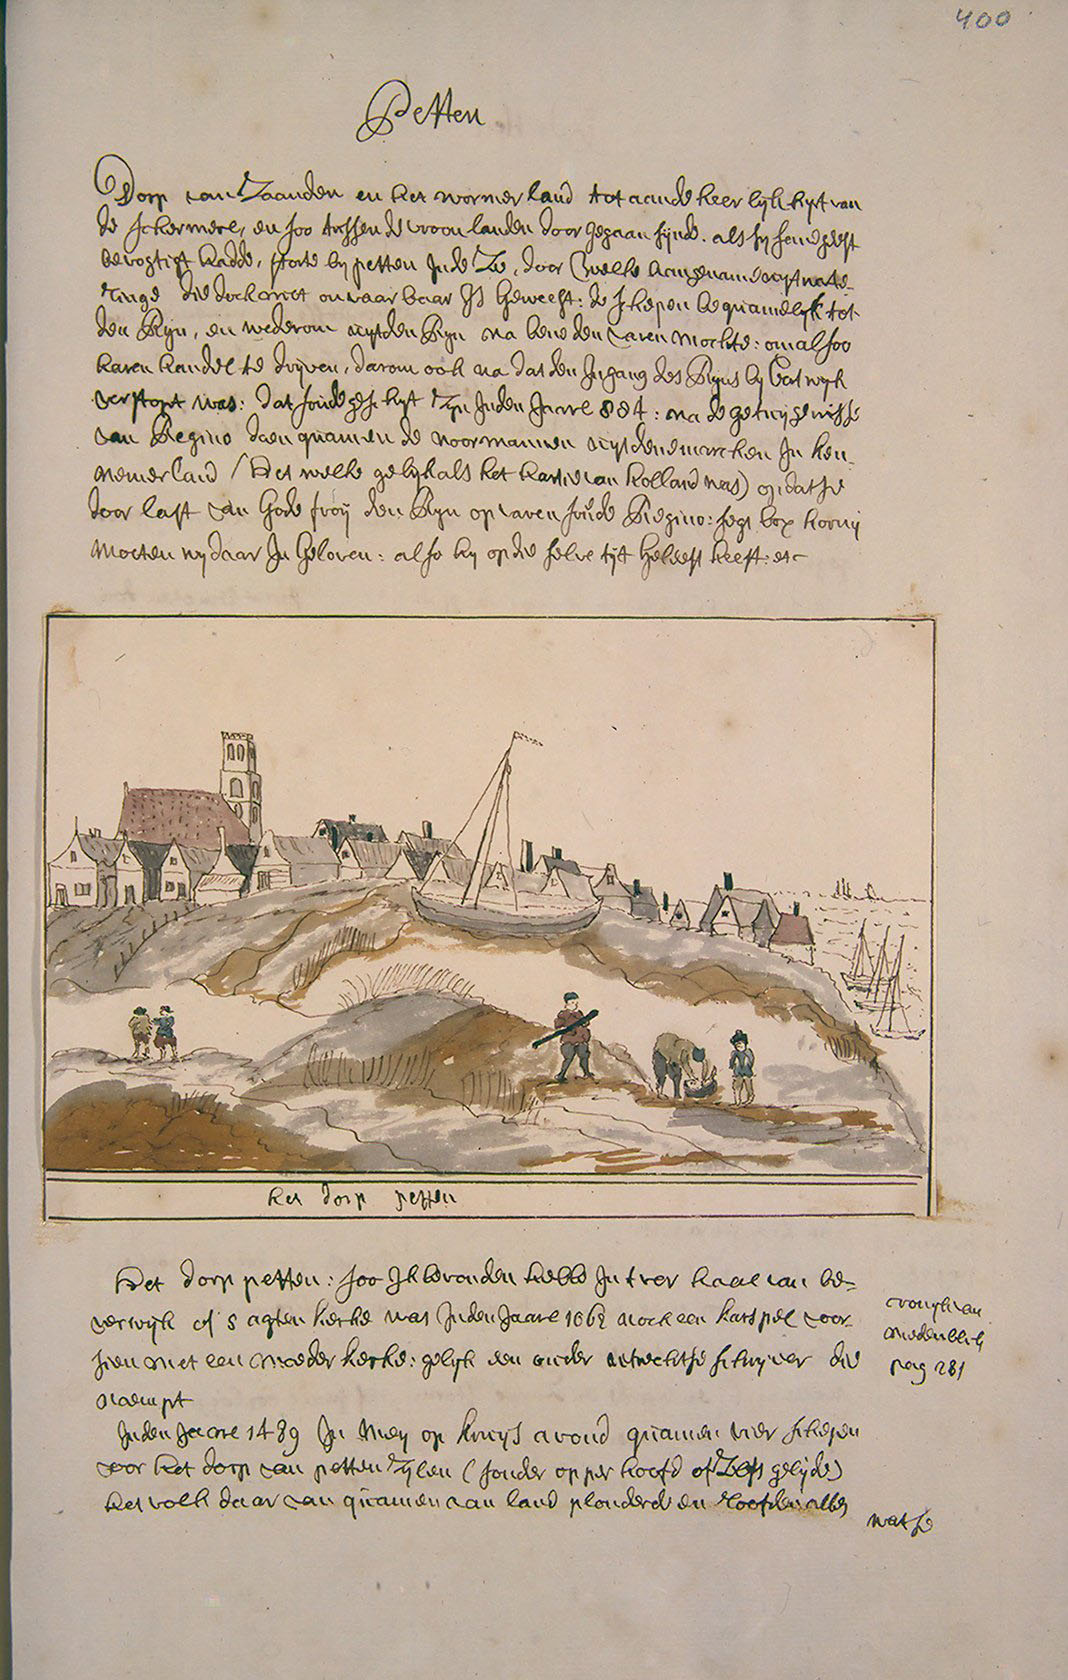 400
Petten
Dorp van Zaanden en het wormer land tot aan de heerlijkhyt van
de schermere, en soo tussen de vroonlanden door gegaan sijnde. als sy
bevogtigt hadde, storte by petten Inde Zee, door welke aangename
ringe die doch niet onvaarbaar Is Geweest: de schepen bequamelyk tot
den Ryn, en wederom uyt den Ryn na beneden varen mochte: om alsoo
haren handel te dryven, darom ook na dat den Ingang des Ryns by Catwyk
verstopt was: dat soude geschyt zyn Inden Jaare 884: na de getuygenisse
van Regino doen quamen de noormannen uyt denemarcken In ken-
nemerland (Het welke gelyk als het van holland was) op dat se
door last van Godefroy den Ryn op varen soude Regino: segt box hoorn
Moeten wy daar In Geloven: also hy op die selve tyt Geleeft heeft: etc
het dorp petten
Het dorp petten: soo Ik bevonden hebbe In t ver haal van be-
verwyk of s agten kerke was Inden Jaare 1662 noch een karspel voor
sien met een moeder kerke: gelyk een ouder utrechtse schryver die
naempt
cronyk van
medenblik
pag 281
Inden Jaare 1489 In Mey op kruys avond quamen vier schepen
voor het dorp van petten Zylen (sonder opper hoofd of gelyde)
het volk daar van quamen aan land plonderde en roofden alles
wat se